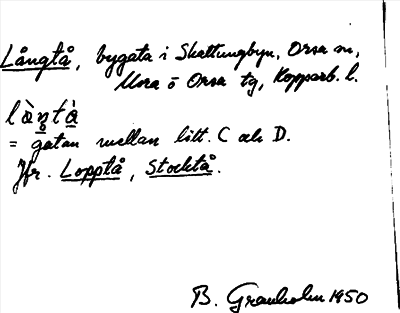 Långtå, bygata i Skattungbyn, Orsa sn,
Mora o Orsa tg, Kopparb. l.
là̀ŋtà
= gatan mellan litt. C och D.
Jfr. Lopptå, Stocktå.
B. Granholm 1950